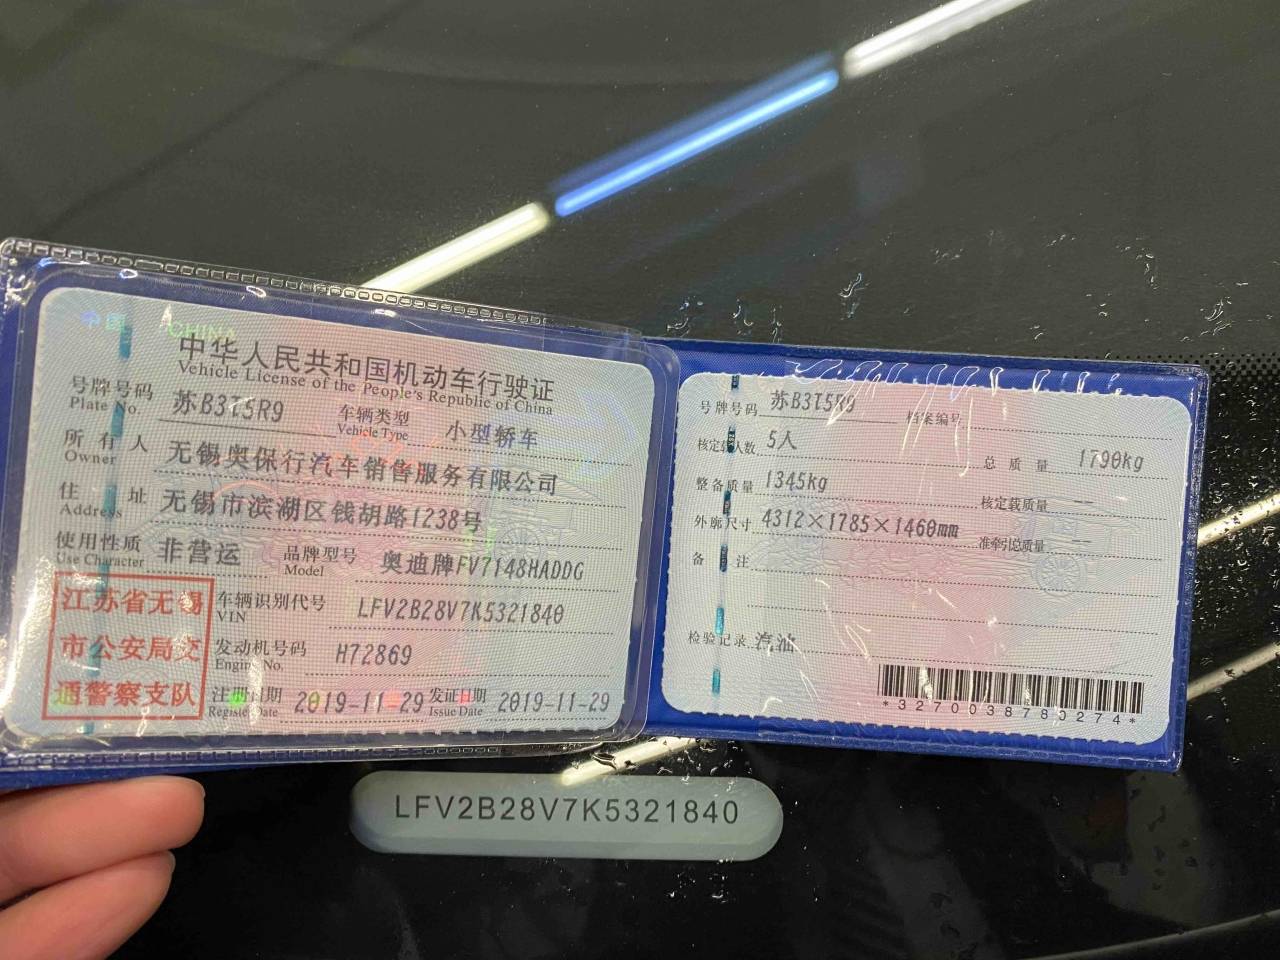 中国 CHINA
中华人民共和国机动车行驶证
Vehicle License of the People's Republic of China
号牌号码 苏B3T5R9 车辆类型 小型轿车
Plate No. Vehicle Type
所有人 无锡奥保行汽车销售服务有限公司
Owner
住址 无锡市滨湖区钱胡路1238号
Address
使用性质 非营运 品牌型号 奥迪牌FV7148HADDG
Use Character Model
江苏省无锡
市公安局交
通警察支队
车辆识别代号 LFV2B28V7K5321840
VIN
发动机号码 H72869
Engine No.
注册日期 2019-11-29 发证日期 2019-11-29
Register Date Issue Date
号牌号码 苏B3T5R9 档案编号
核定载人数 5人 总质量 1790kg
整备质量 1345kg 核定载质量 --
外廓尺寸 4312×1785×1460mm 准牵引总质量 --
备注
检验记录 汽油
*3270038780274*
LFV2B28V7K5321840